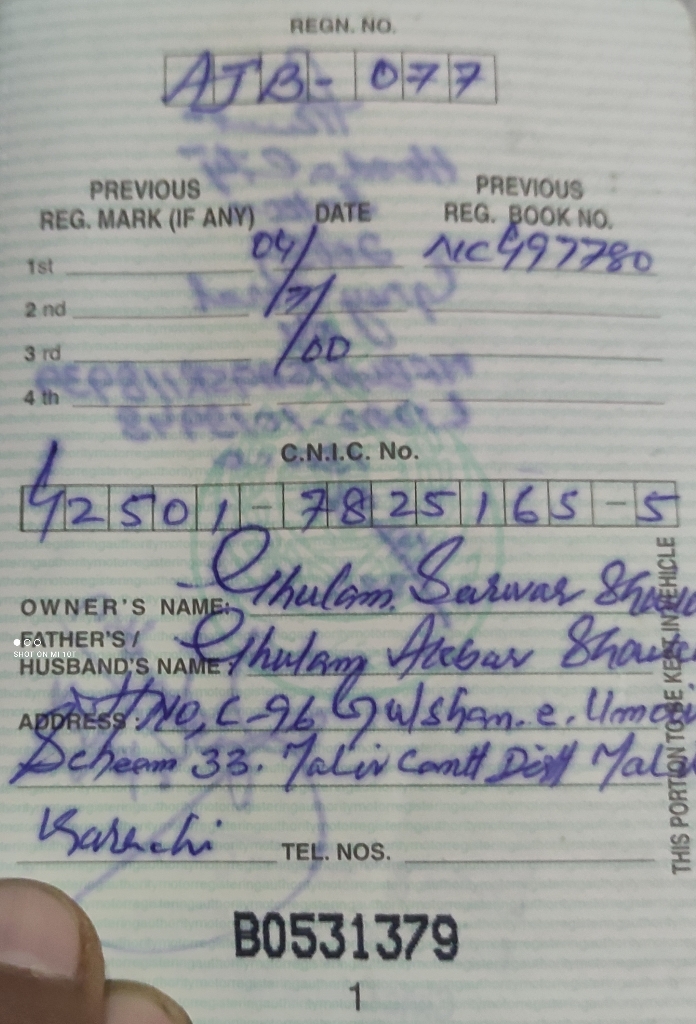 REGN. NO.
AJB-077
PREVIOUS REG. MARK (IF ANY) DATE PREVIOUS REG. BOOK NO.
1st 04/ NC497780
2 nd 7/
3 rd 00
4 th
C.N.I.C. No.
42501-7825165-5
OWNER'S NAME: Ghulam Sarwar
FATHER'S /
SHOT ON MI 10T
HUSBAND'S NAME Ghulam Akbar
ADDRESS : H NO, C-96 Gulshan.e.
Scheem 33. Malir Cantt Distt
Karachi TEL. NOS.
THIS PORTION TO BE KEPT IN VEHICLE
B0531379
1